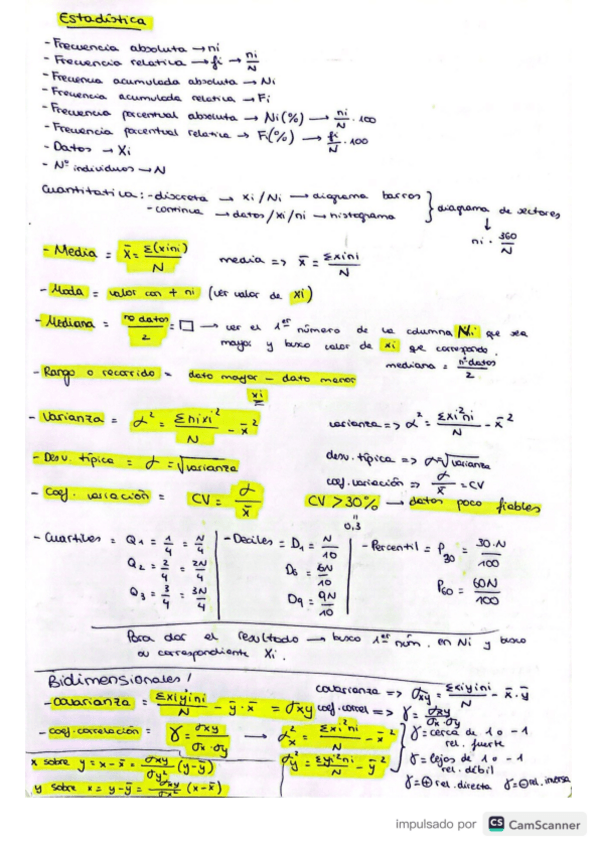 Estadística
- Frecuencia absoluta → ni
- Frecuencia relativa → fi → ni/N
- Frecuencia acumulada absoluta → Ni
- Frecuencia acumulada relativa → Fi
- Frecuencia porcentual absoluta → Ni(%) → ni/N · 100
- Frecuencia porcentual relativa → Fi(%) → fi/N · 100
- Datos → Xi
- Nº individuos → N
Cuantitativa: - discreta → xi/Ni → diagrama barras } diagrama de sectores
- continua → datos/xi/ni → histograma
↓
ni · 360/N
- Media = x̄ = Σ(xini)/N media => x̄ = Σxini/N
- Moda = valor con + ni (ver valor de xi)
- Mediana = nº datos/2 = □ → ver el 1er número de la columna Ni que sea
mayor y busco valor de xi que corresponda.
mediana = nº datos/2
- Rango o recorrido = dato mayor - dato menor
xi
- Varianza = α² = Σnixi²/N - x̄² varianza => α² = Σxi²ni/N - x̄²
- Desv. típica = α = √varianza desv. típica => α = √varianza
- Coef. variación = CV = α/x̄ coef. variación => α/x̄ = CV
CV > 30% → datos poco fiables
"
0,3
- Cuartiles = Q1 = 1/4 = N/4 - Deciles = D1 = N/10 - Percentil = P30 = 30·N/100
Q2 = 2/4 = 2N/4 D6 = 6N/10 P60 = 60N/100
Q3 = 3/4 = 3N/4 D9 = 9N/10
Para dar el resultado → busco 1er núm. en Ni y busco
su correspondiente Xi.
Bidimensionales!
- covarianza = Σxiyini/N - ȳ · x̄ = σxy covarianza => σxy = Σxiyini/N - x̄ · ȳ
coef correl => γ = σxy/σx·σy
- coef. correlación = γ = σxy/σx·σy → σx² = Σxi²ni/N - x̄²
σy² = Σyi²ni/N - ȳ²
γ = cerca de 1 o -1
rel. fuerte
γ = lejos de 1 o -1
rel. débil
γ = ⊕ rel. directa γ = ⊖ rel. inversa
x sobre y = x - x̄ = σxy/σy² (y - ȳ)
y sobre x = y - ȳ = σxy/σx² (x - x̄)
impulsado por CS CamScanner